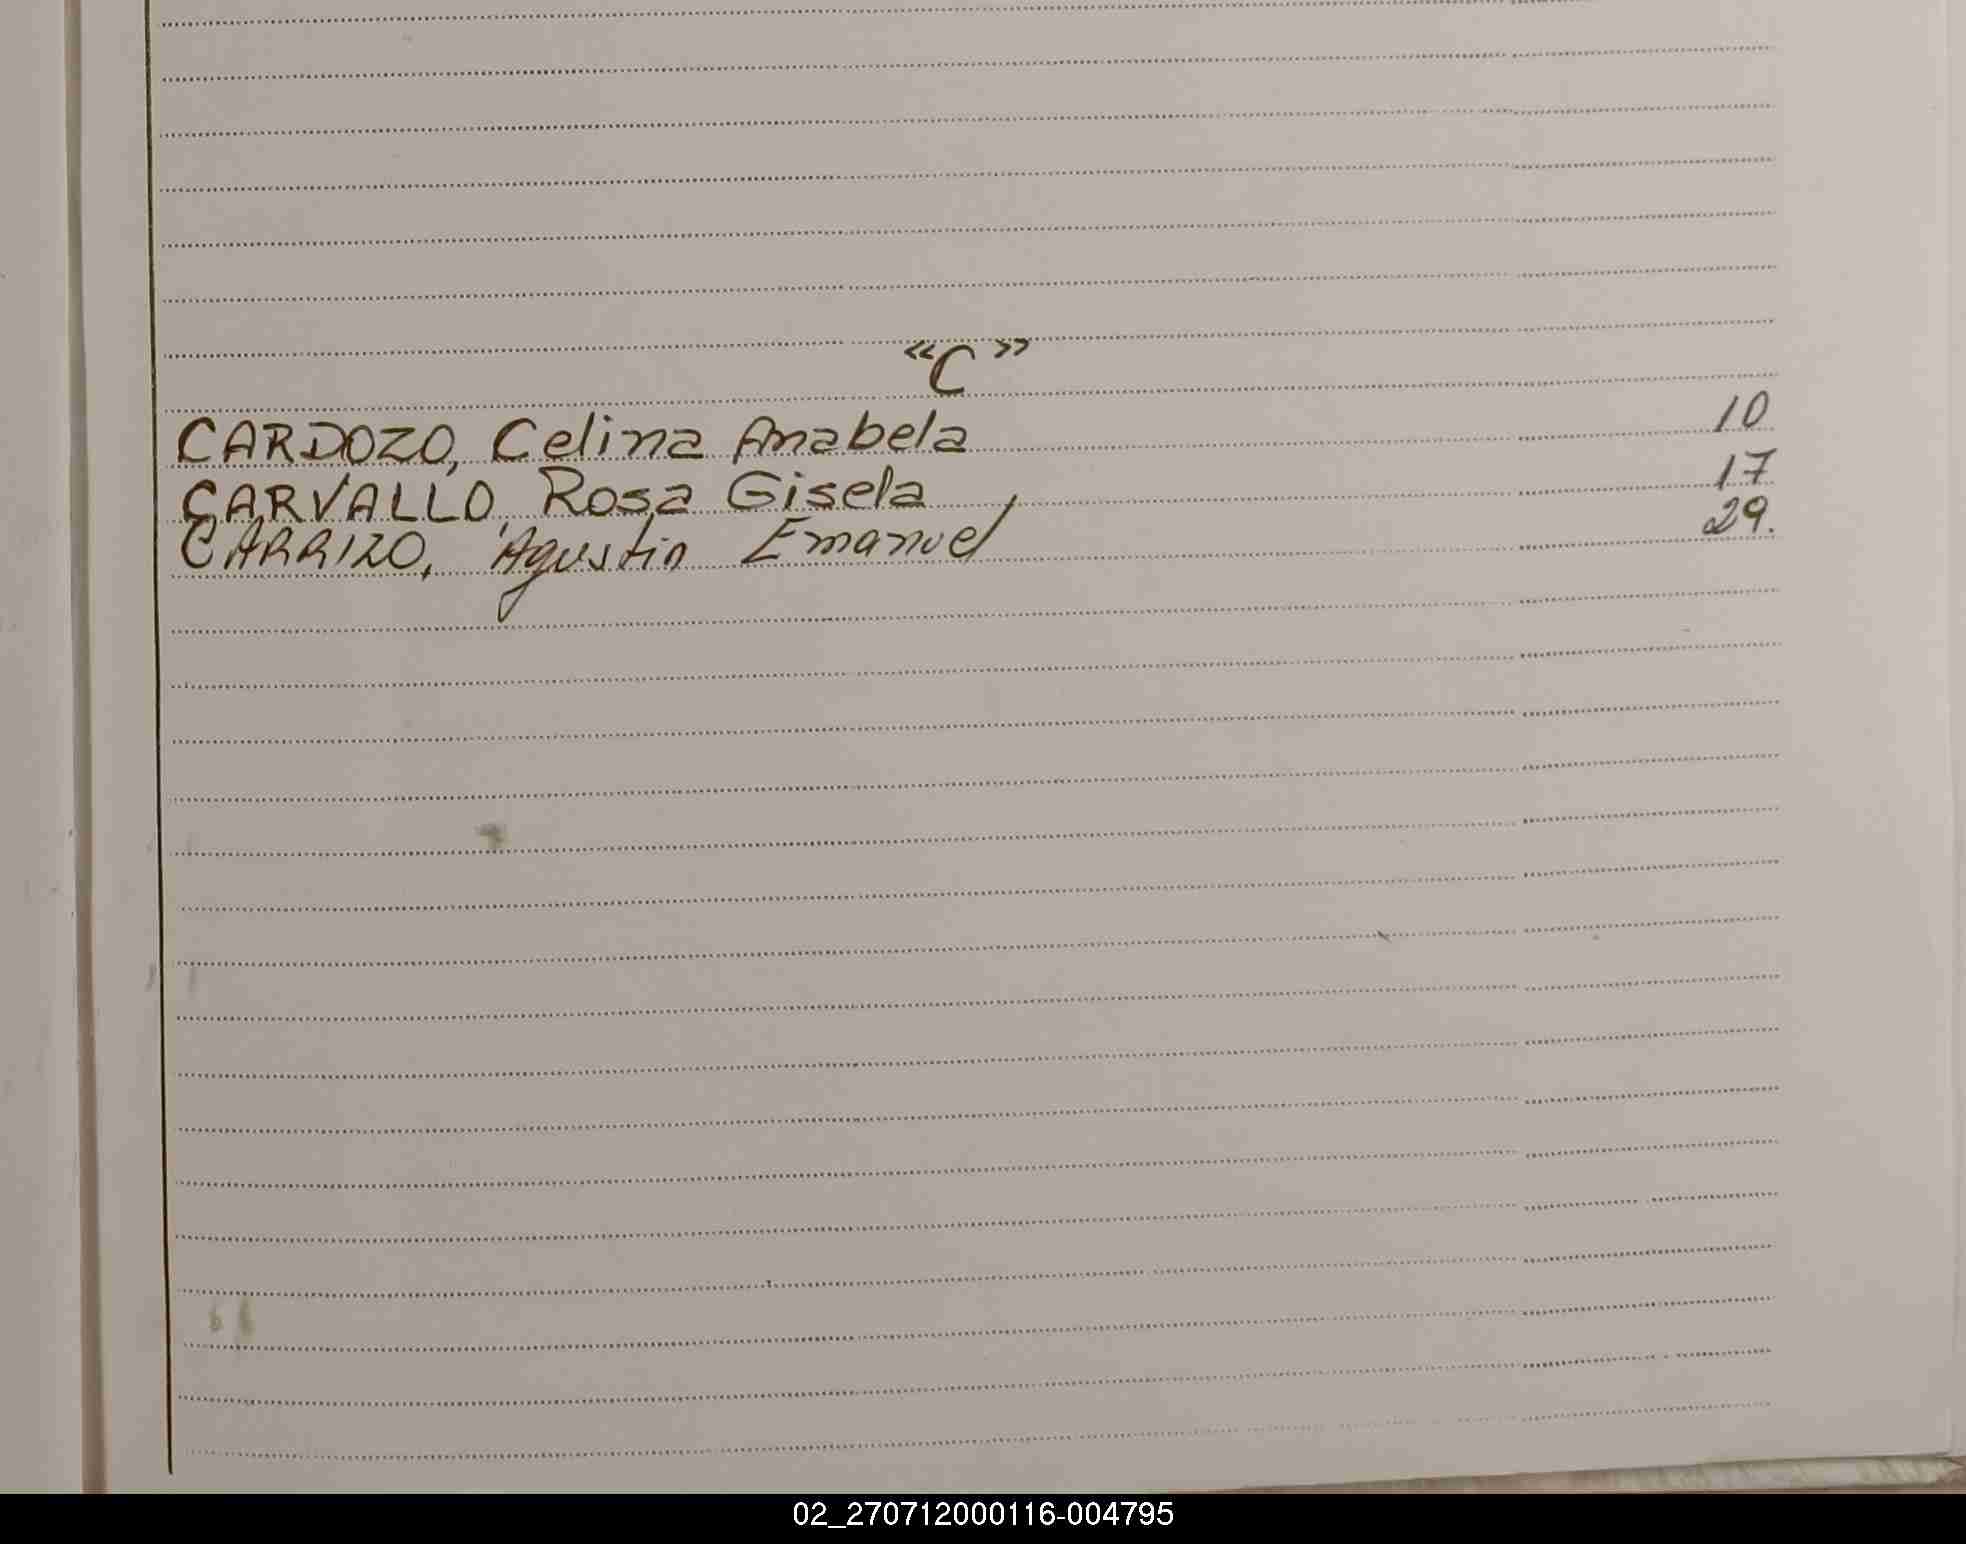 “C”
CARDOZO, Celina Anabela 10
CARVALLO, Rosa Gisela 17
CARRIZO, Agustin Emanuel 29.
02_270712000116-004795